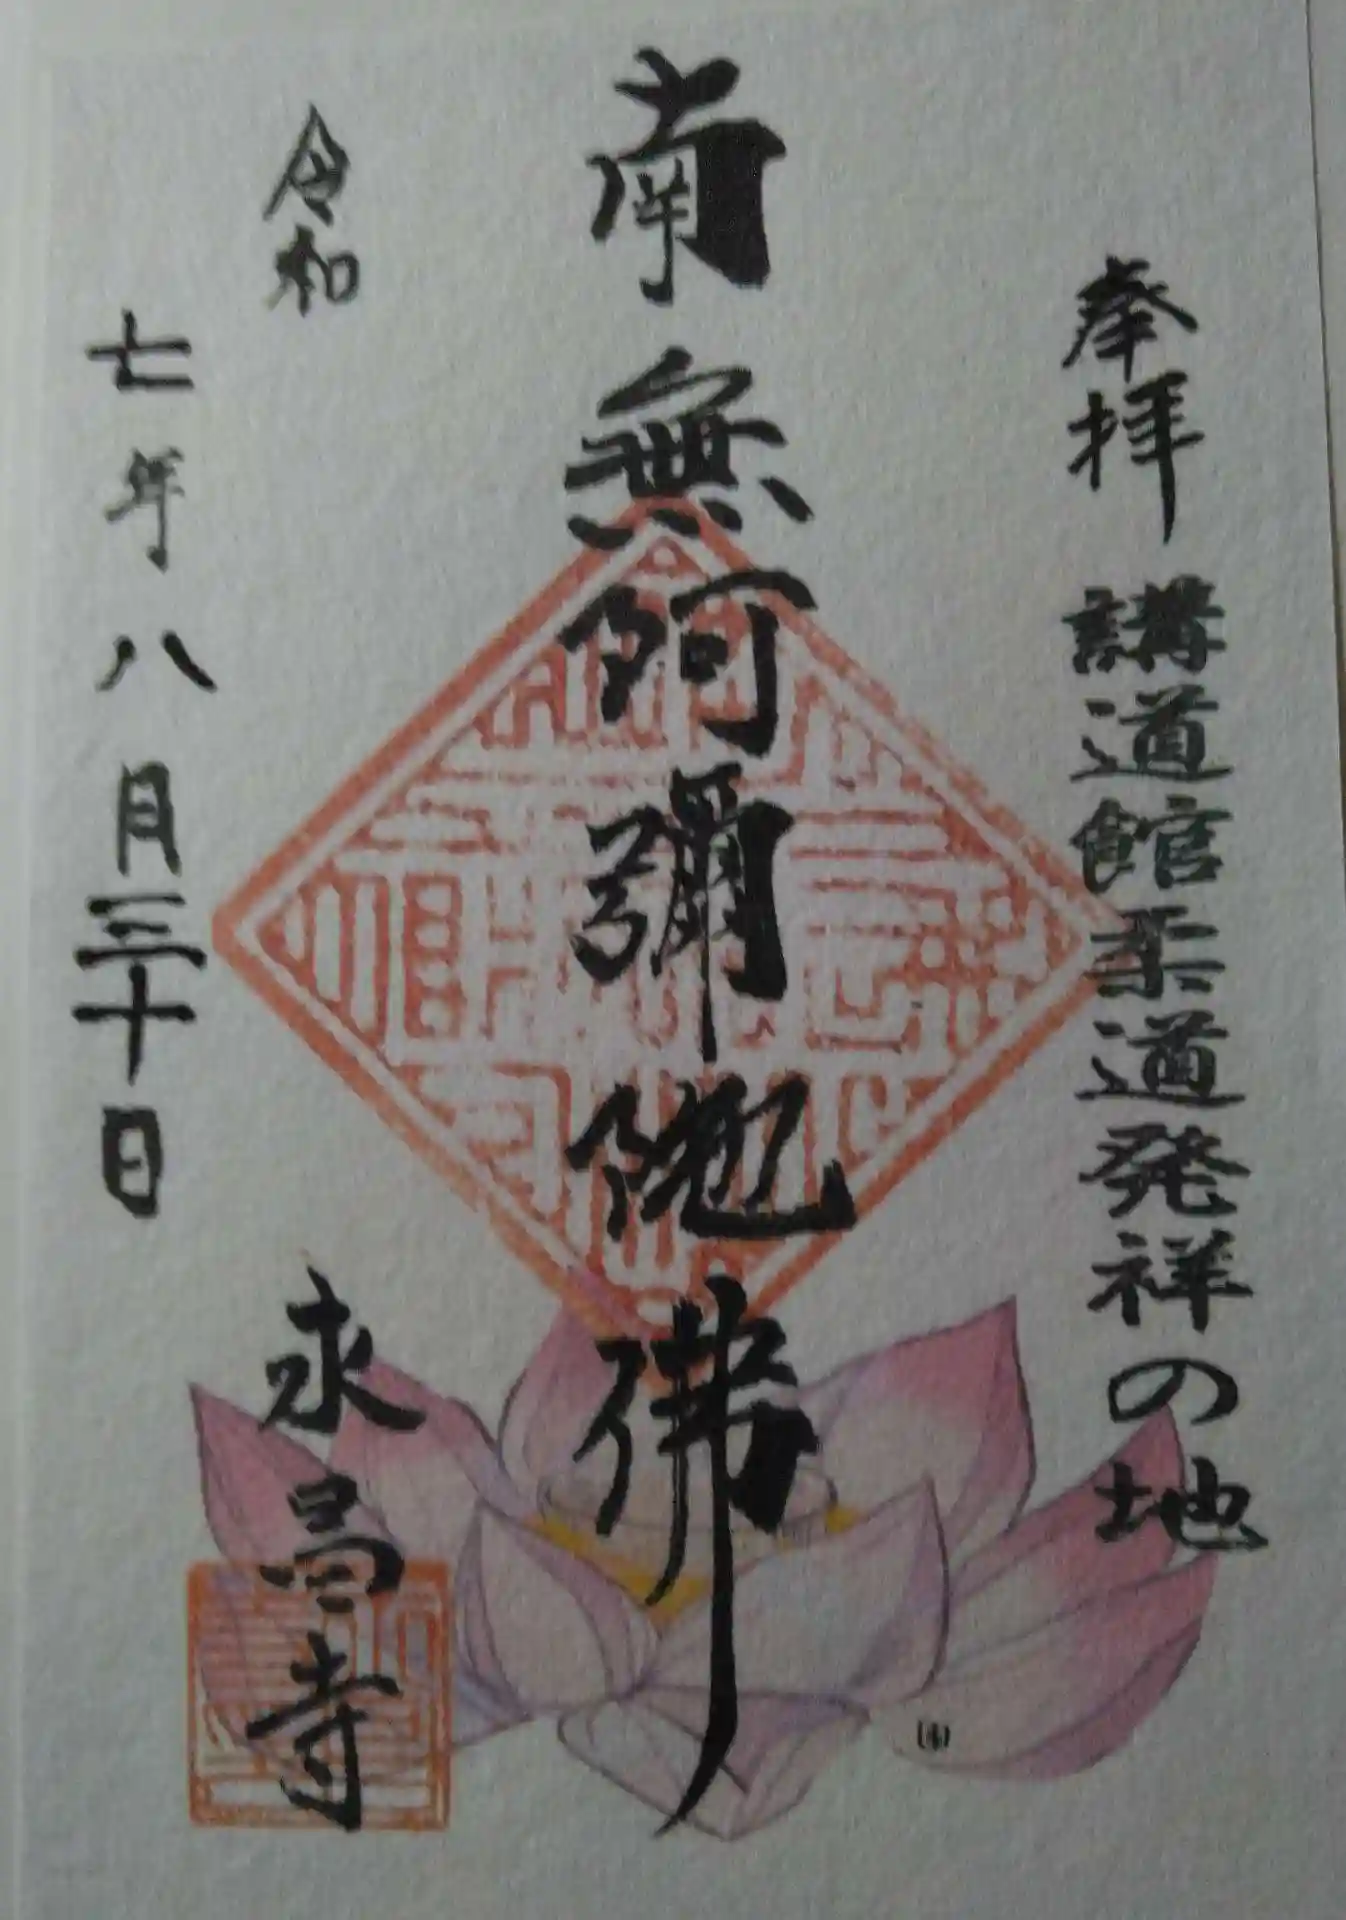 奉拝 講道館柔道発祥の地
南無阿彌陀佛
令和
七年八月三十日
永昌寺